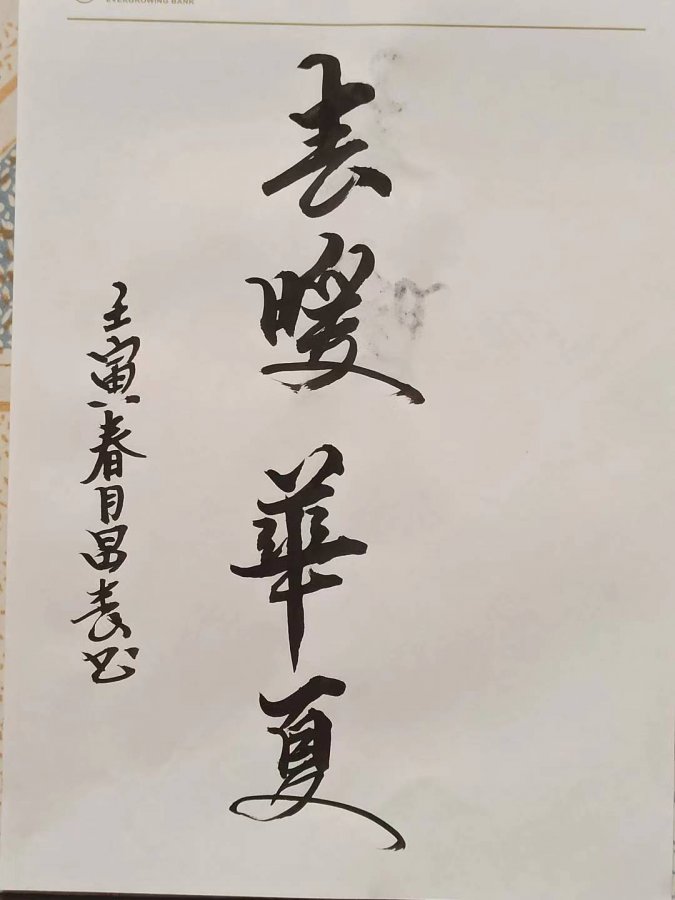 EVERGROWING BANK
春暖華夏
壬寅春月昌春书